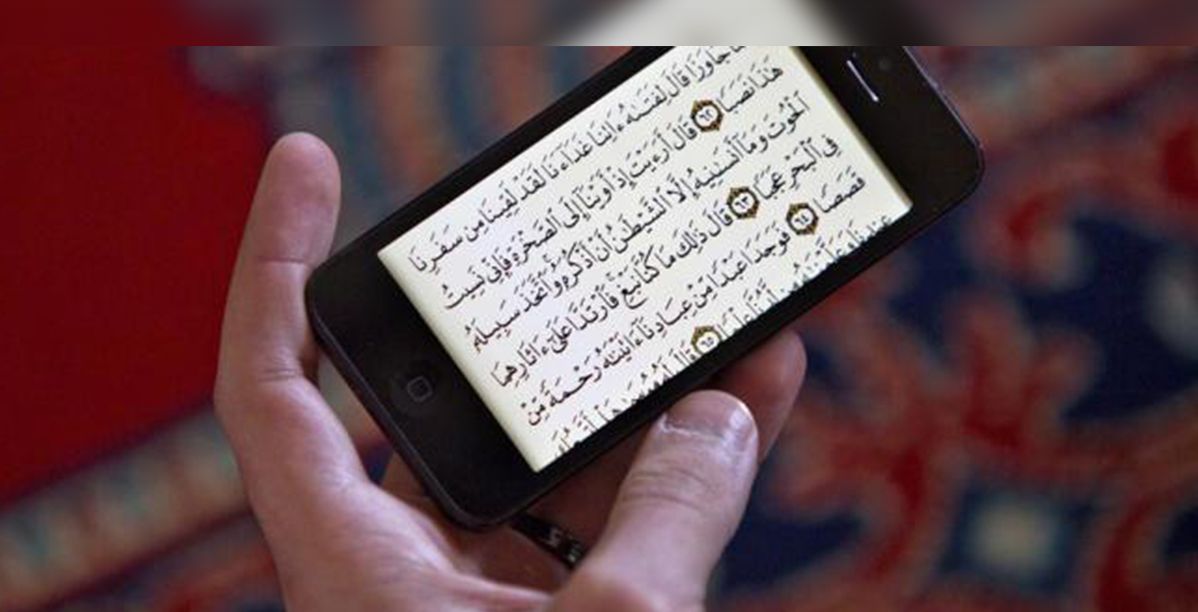 جَاوَزَا قَالَ لِفَتَىٰهُ ءَاتِنَا غَدَآءَنَا لَقَدْ لَقِينَا مِن سَفَرِنَا
هَٰذَا نَصَبًا ٦٢ قَالَ أَرَءَيْتَ إِذْ أَوَيْنَآ إِلَى ٱلصَّخْرَةِ فَإِنِّى نَسِيتُ
ٱلْحُوتَ وَمَآ أَنسَىٰنِيهُ إِلَّا ٱلشَّيْطَٰنُ أَنْ أَذْكُرَهُۥ وَٱتَّخَذَ سَبِيلَهُۥ
فِى ٱلْبَحْرِ عَجَبًا ٦٣ قَالَ ذَٰلِكَ مَا كُنَّا نَبْغِ فَٱرْتَدَّا عَلَىٰٓ ءَاثَارِهِمَا
قَصَصًا ٦٤ فَوَجَدَا عَبْدًا مِّنْ عِبَادِنَآ ءَاتَيْنَٰهُ رَحْمَةً مِّنْ
عِندِنَا وَعَلَّمْنَٰهُ مِن لَّدُنَّا عِلْمًا ٦٥ قَالَ